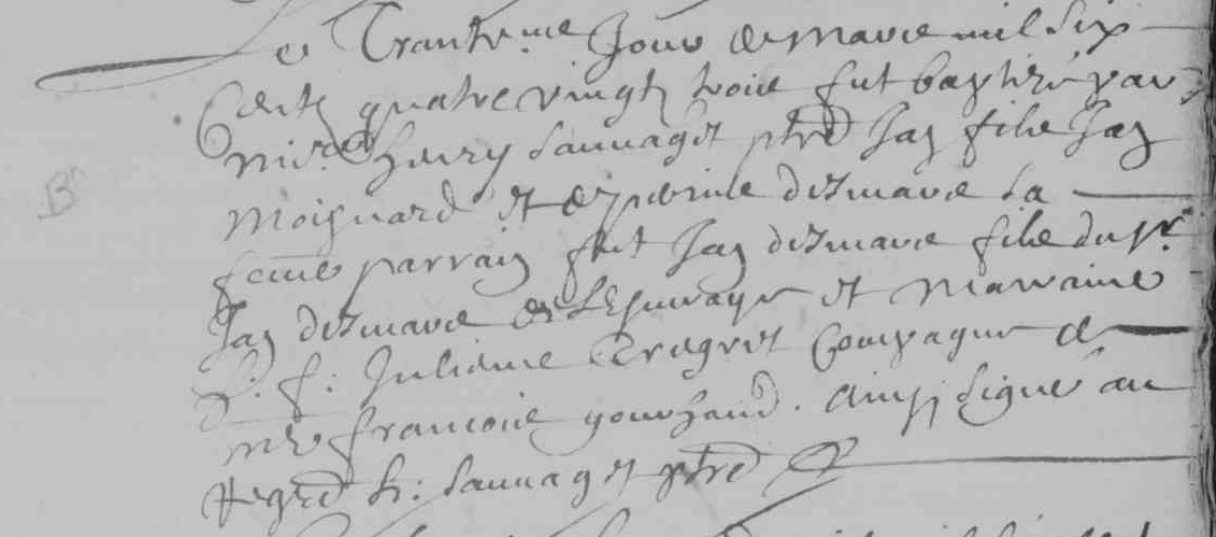 Le Trantiesme Jour de Mars mil Six
Cents quatre vingts trois fut baptizé par
Mire Henry Sauvaget ptre Jan filz Jan
Moisnard et de perrine desmars sa
feme parrain fut Jan desmars filz du sr
Jan desmars de et marraine
d. f. Julienne Compagne de
Me francois gourhand. Ainsi signé au
Regre h: Sauvaget ptre
B